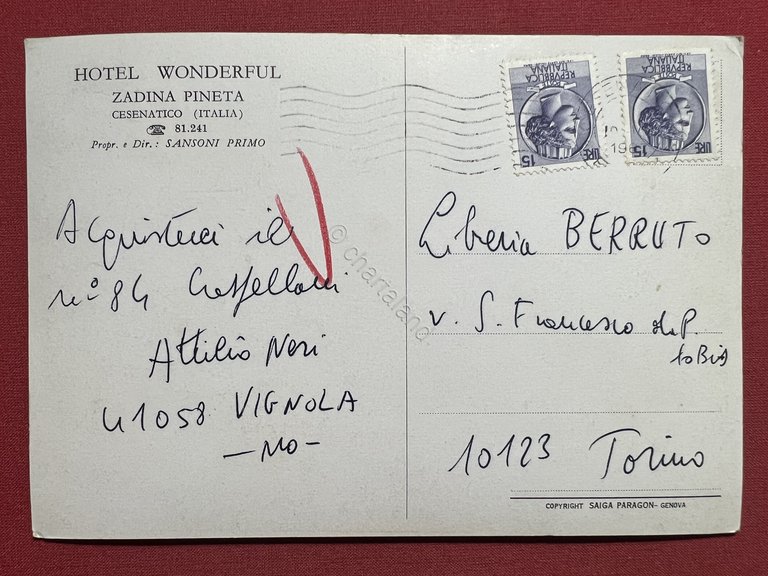 HOTEL WONDERFUL
ZADINA PINETA
CESENATICO (ITALIA)
☎ 81.241
Propr. e Dir.: SANSONI PRIMO
Acquisterei il
n° 84
Attilio Neri
41058 VIGNOLA
-MO-
REPVBBLICA
ITALIANA
LIRE 15
REPVBBLICA
ITALIANA
LIRE 15
19
Libreria BERRUTO
v. S. Francesco da P.
10 BIS
10123 Torino
COPYRIGHT SAIGA PARAGON- GENOVA
© chartaland